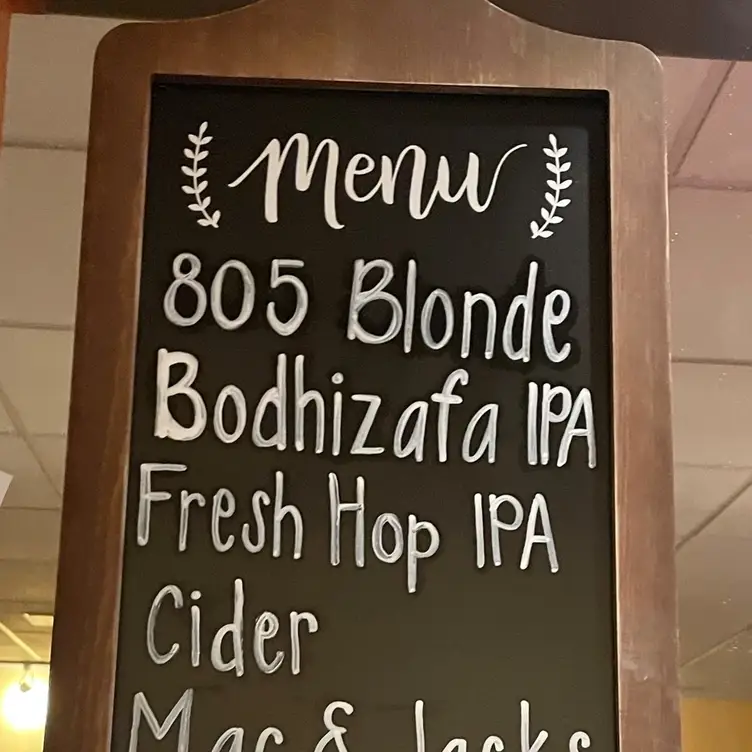 Menu
805 Blonde
Bodhizafa IPA
Fresh Hop IPA
Cider
Mac & Jacks